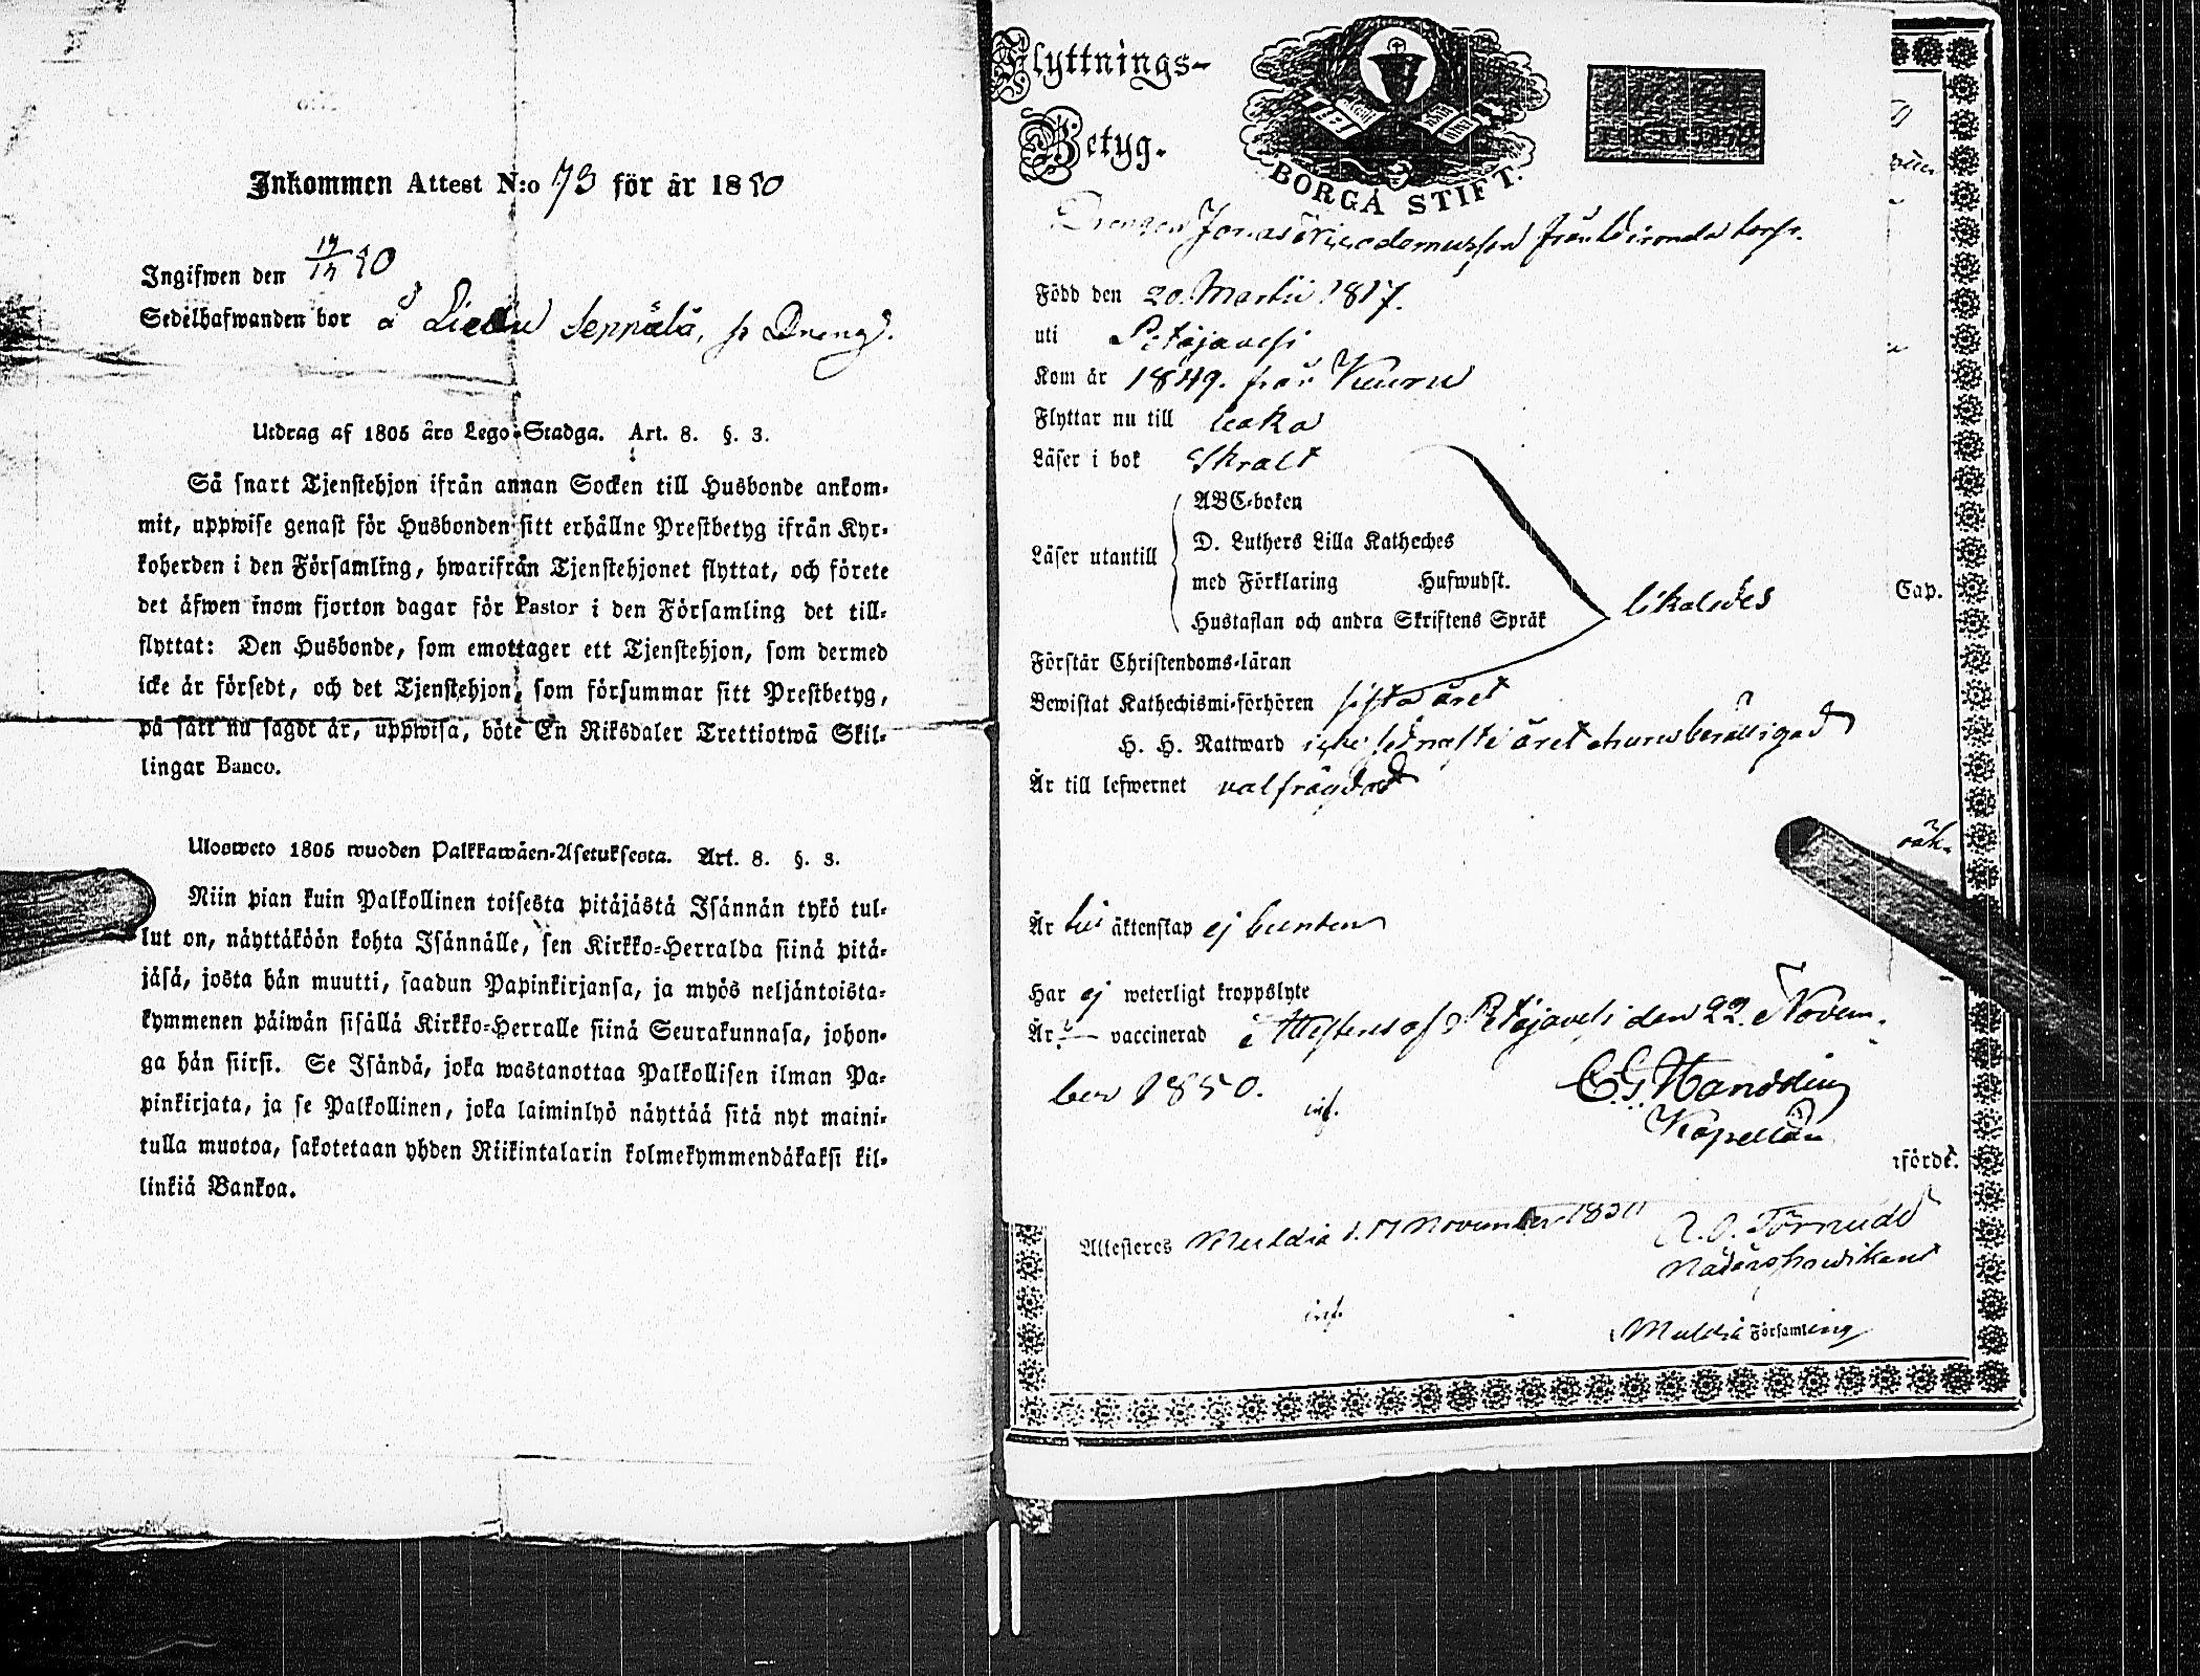 Inkommen Attest N:o 73 för år 1850
Ingifwen den 50
Sedelhafwanden bor å Seppälä, s Dreng.
Utdrag af 1805 års Lego-Stadga. Art. 8. §. 3.
Så snart Tjenstehjon ifrån annan Socken till Husbonde ankom-
mit, uppwise genast för Husbonden sitt erhållne Prestbetyg ifrån Kyr-
koherden i den Församling, hwarifrån Tjenstehjonet flyttat, och förete
det äfwen inom fjorton dagar för Pastor i den Församling det till-
flyttat: Den Husbonde, som emottager ett Tjenstehjon, som dermed
icke är försedt, och det Tjenstehjon, som försummar sitt Prestbetyg,
på sätt nu sagdt är, uppwisa, böte En Riksdaler Trettiotwå Skil-
lingar Banco.
Ulosweto 1805 wuoden Palkkawäen-Asetuksesta. Art. 8. §. 3.
Niin pian kuin Palkollinen toisesta pitäjästä Isännän tykö tul-
lut on, näyttäköön kohta Isännälle, sen Kirkko-Herralda siinä pitä-
jäsä, josta hän muutti, saadun Papinkirjansa, ja myös neljäntoista-
kymmenen päiwän sisällä Kirkko-Herralle siinä Seurakunnasa, johon-
ga hän siirsi. Se Isändä, joka wastanottaa Palkollisen ilman Pa-
pinkirjata, ja se Palkollinen, joka laiminlyö näyttää sitä nyt maini-
tulla muotoa, sakotetaan yhden Riikintalarin kolmekymmendäkaksi kil-
linkiä Bankoa.
Flyttnings-
Betyg.
BORGÅ STIFT.
Drengen Jonas från
Född den 20. Martii 1817.
uti Petäjavesi
Kom år 1849. från Keuru
Flyttar nu till
Läser i bok Skralt
ABC-boken
D. Luthers Lilla Katheches
Läser utantill
med Förklaring Hufwudst.
Hustaflan och andra Skriftens Språk
likaledes
Cap.
Förstår Christendoms-läran
Bewistat Kathechismi-förhören sista året
H. H. Nattward året ehuru berättigad
Är till lefwernet välfrägdad
Är till äktenskap ej bunden
Har ej weterligt kroppslyte
Är vaccinerad Attesteras af Petäjavesi den 22. Novem-
ber 1850.
Kapellan
iförde.
Attesteres Multia d. November 1850
A. O. Törnudd
Nådårspredikant
Multia Församling